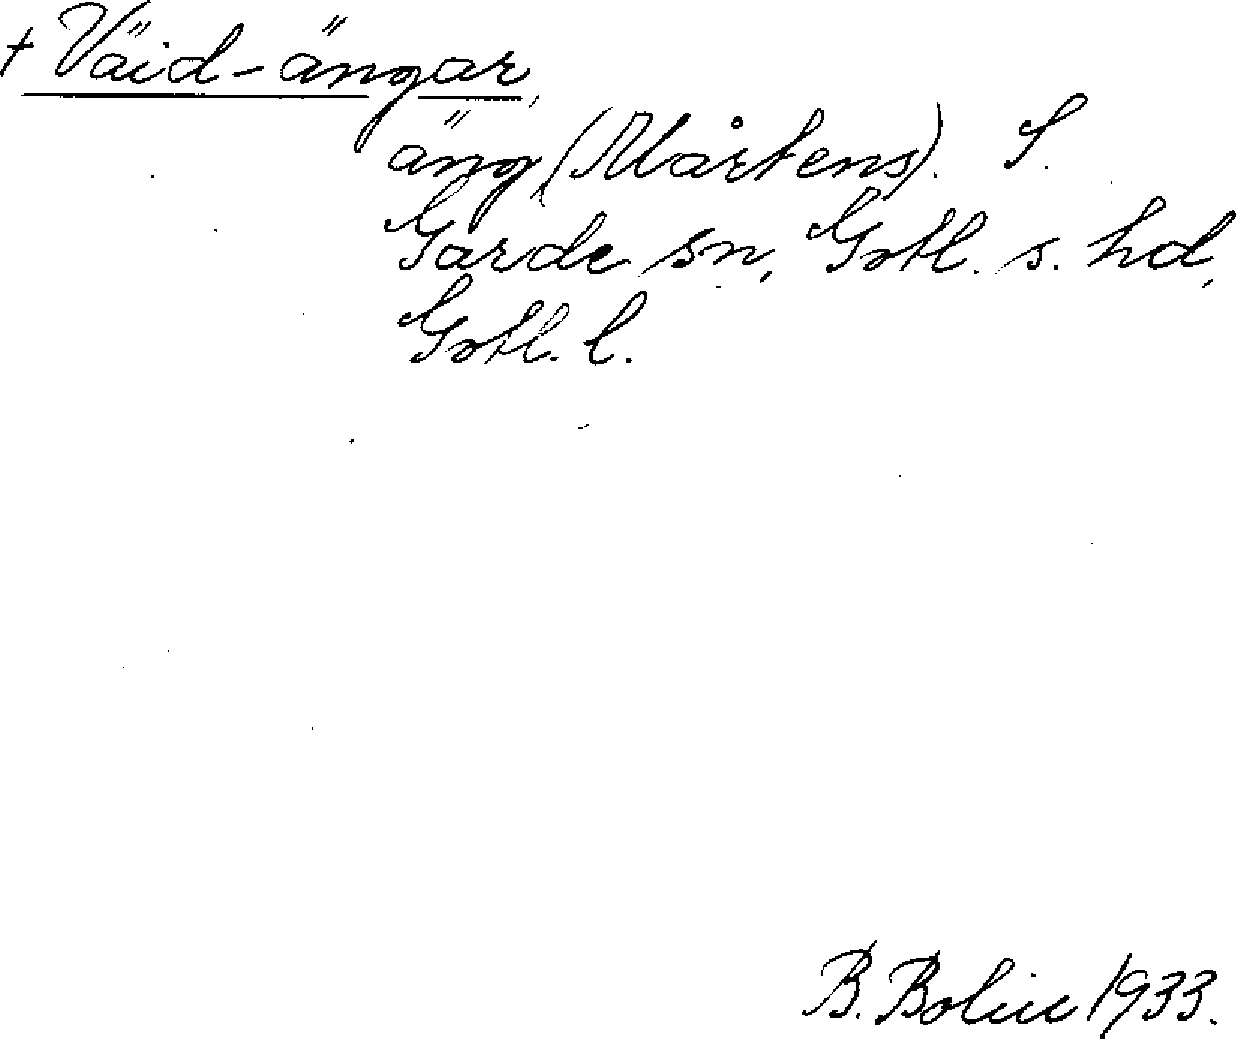 + Väid-ängar,
äng (Mårtens). S.
Garde sn, Gotl. s. hd,
Gotl. l.
B. Bolin 1933.